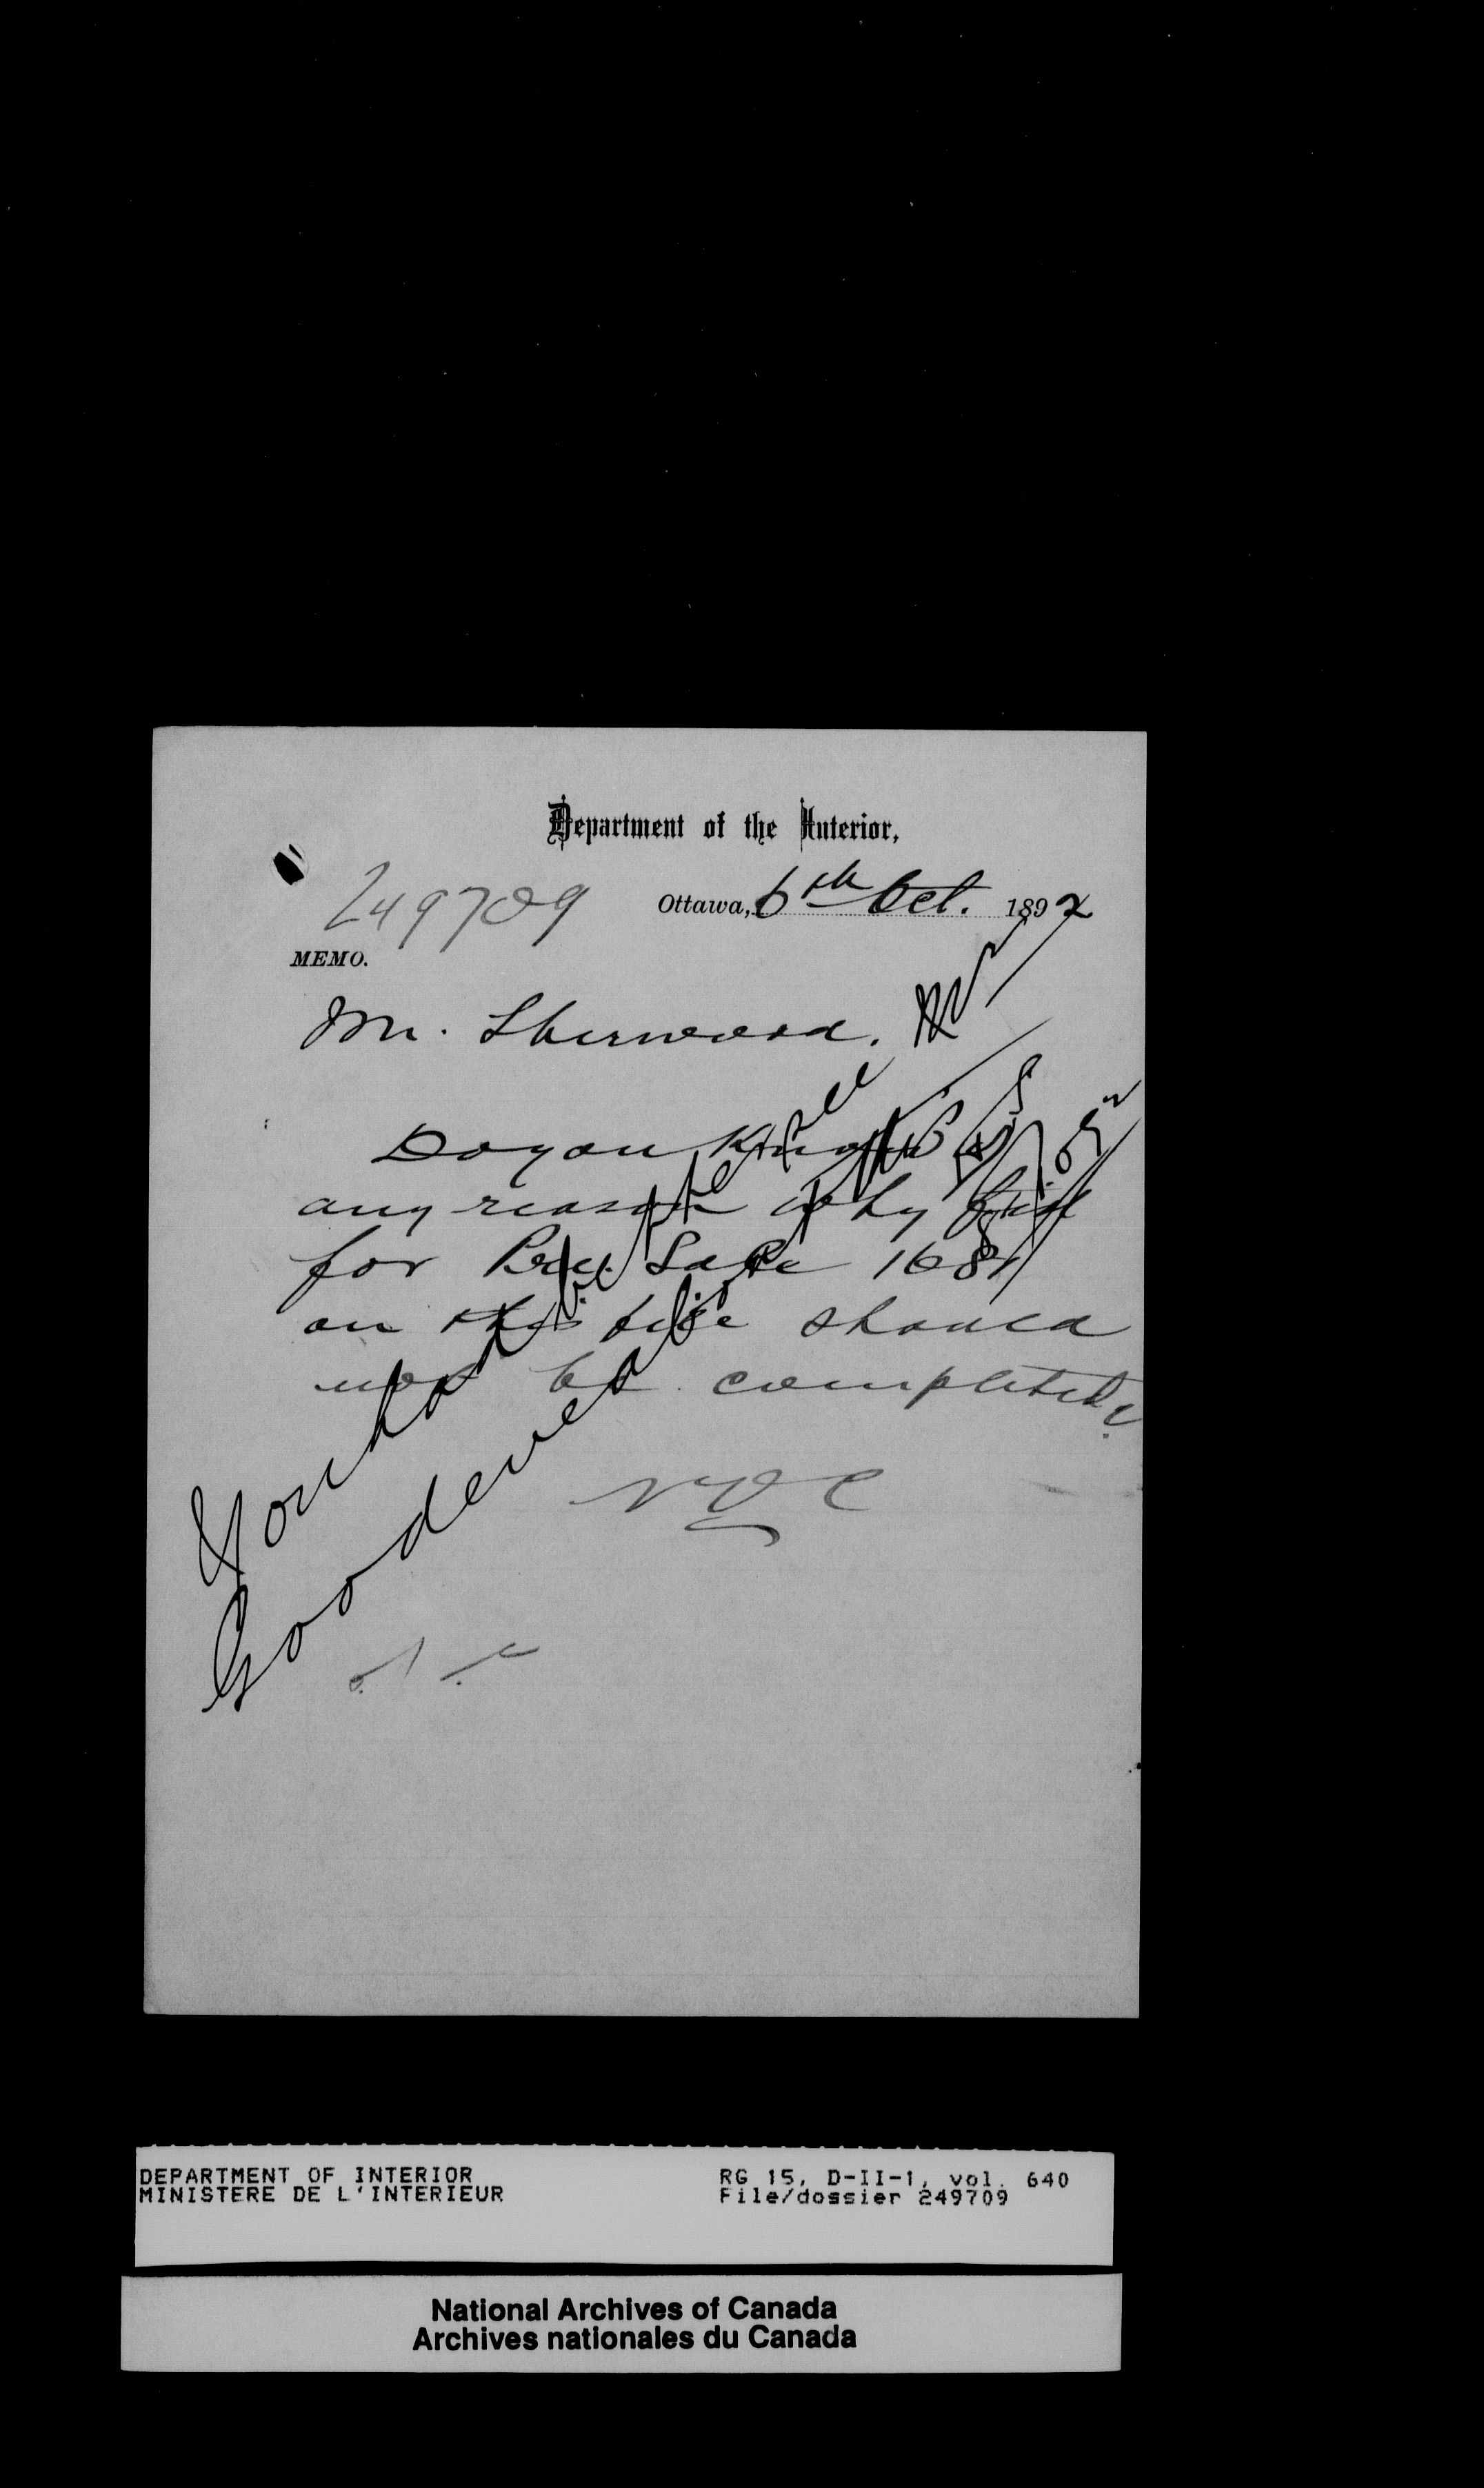 Department of the Interior,
249709
Ottawa, 6th Oct. 1892
MEMO.
Mr. Sherwood.
Do you know
any reason why
for Sale 1681
on this file should
not be completed?
You had better see
Goodeve about this
DEPARTMENT OF INTERIOR
MINISTERE DE L'INTERIEUR
RG 15, D-II-1, vol. 640
File/dossier 249709
National Archives of Canada
Archives nationales du Canada